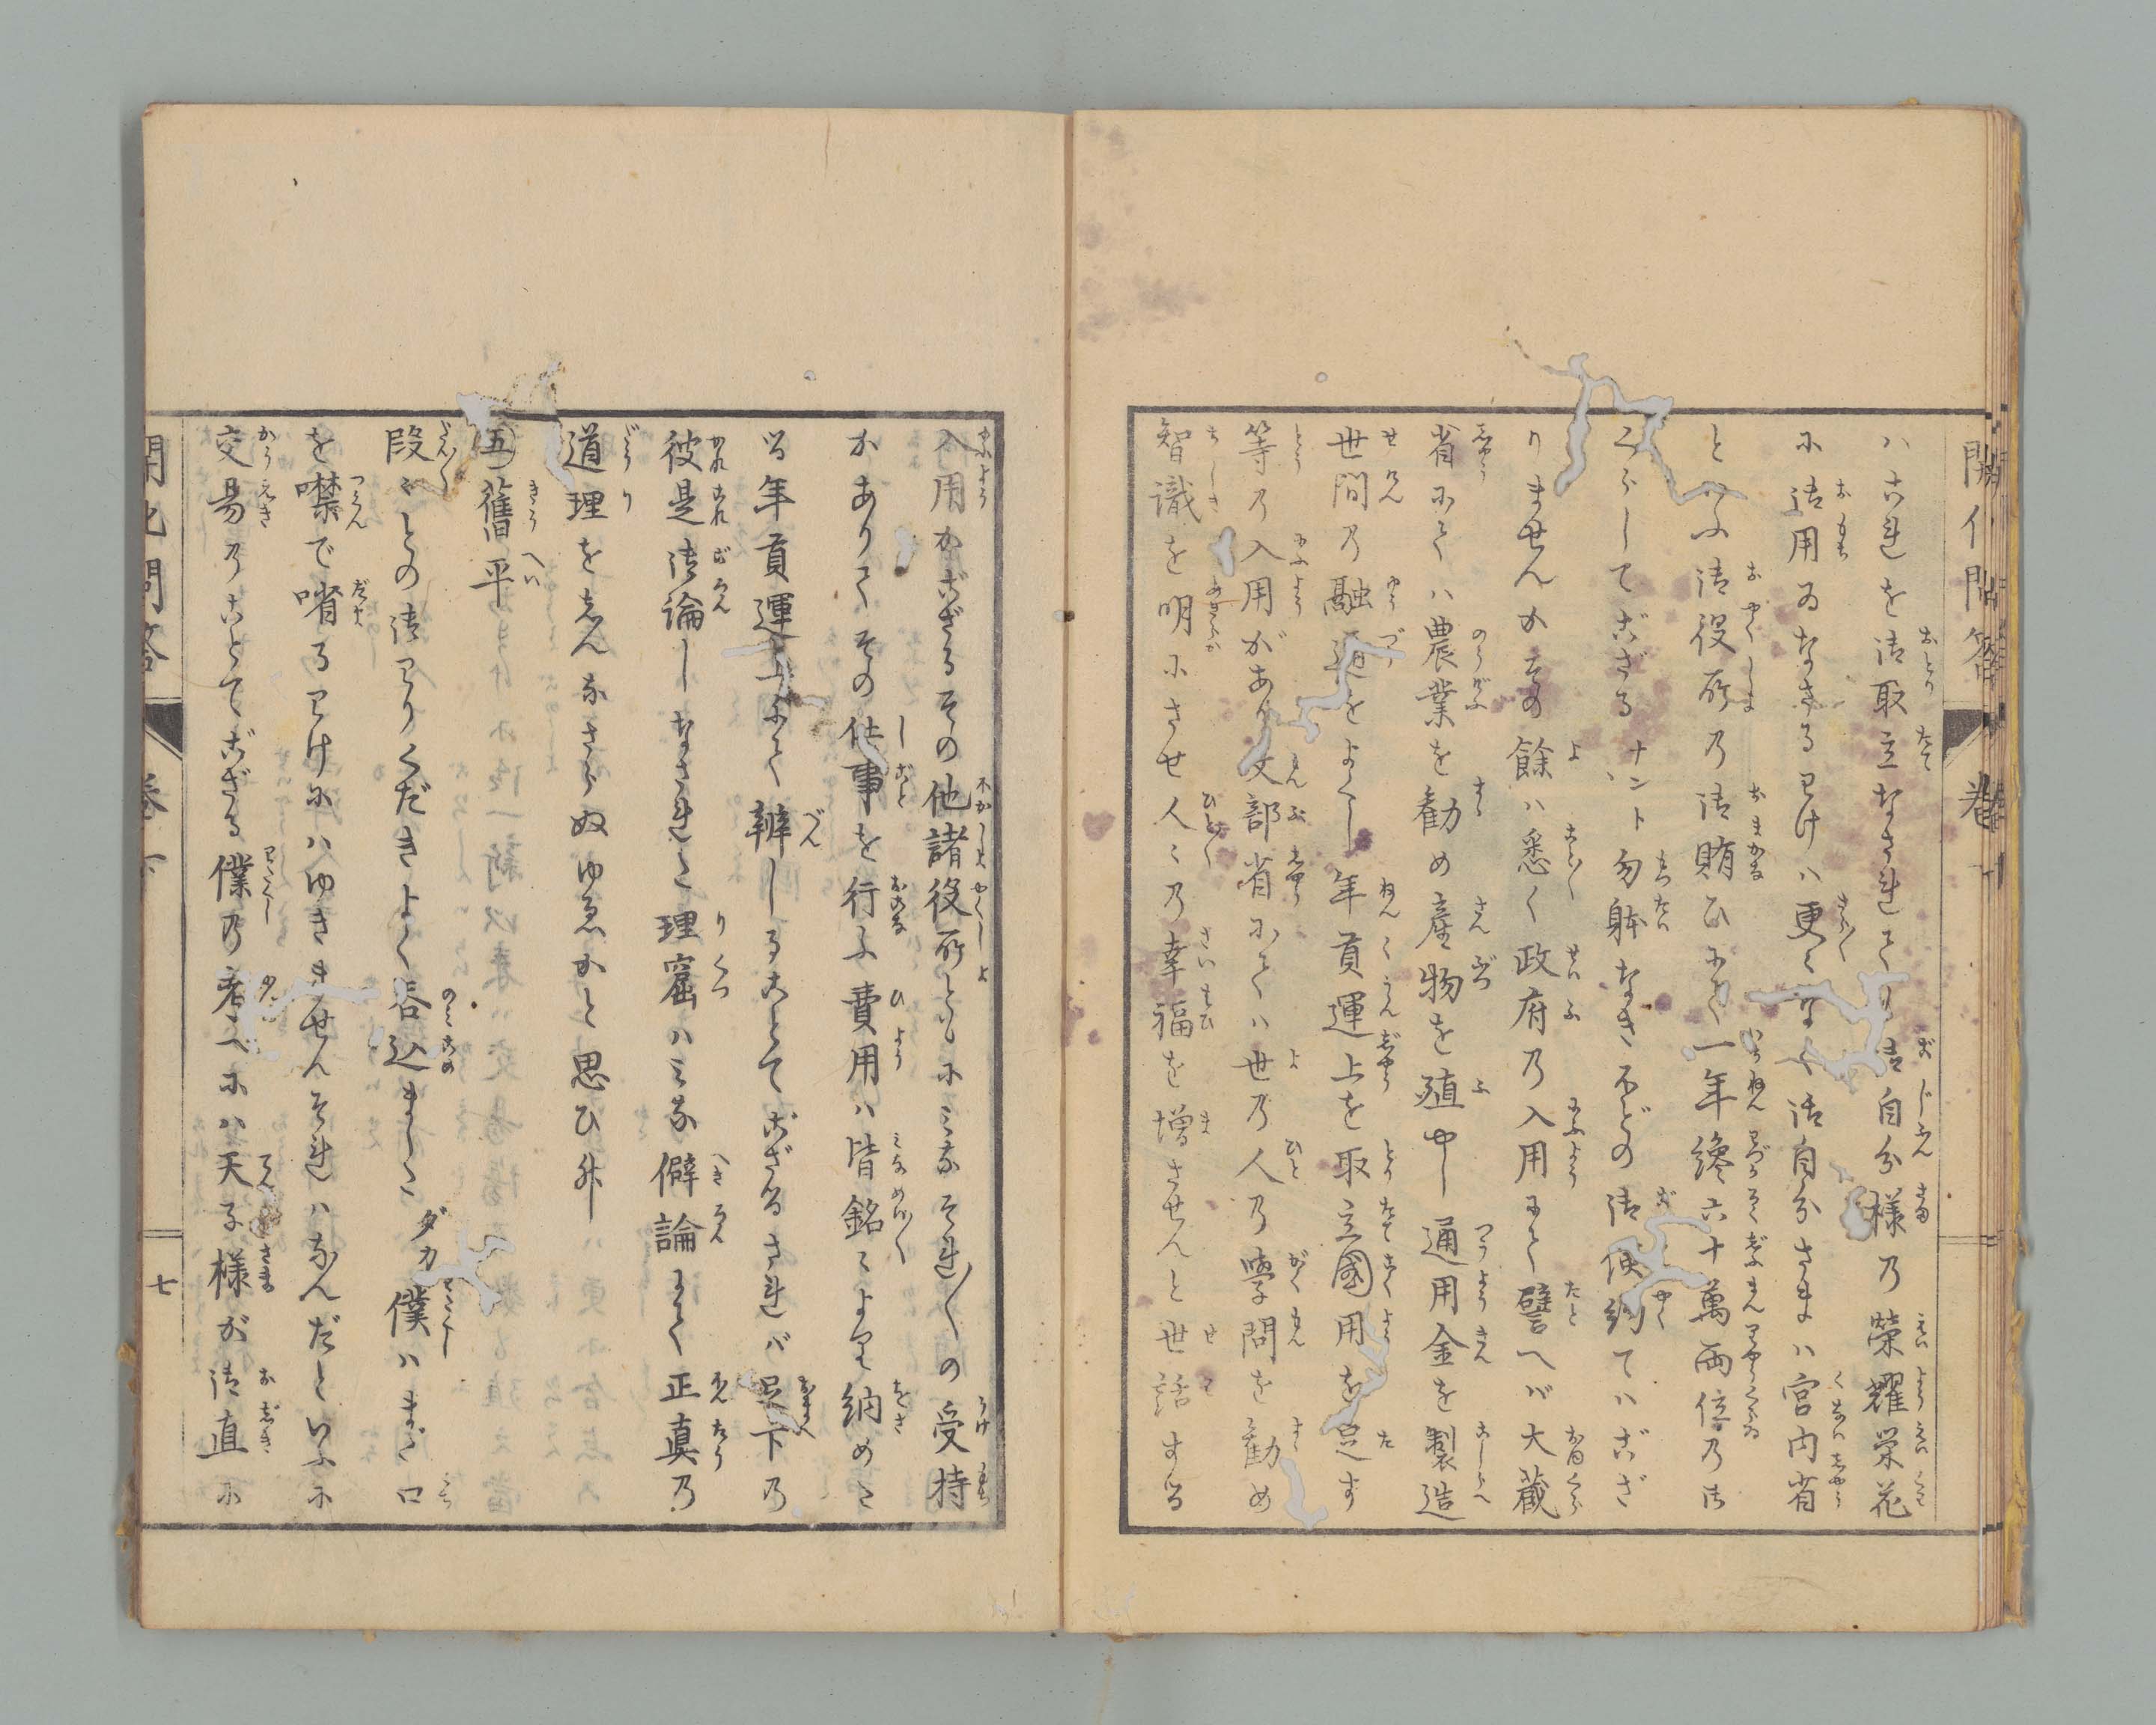 開化問答 巻下
ハ古れを御取立なされても御自分様乃榮耀栄花
に御用ゐなさるわけハ更〻なく御自分さまハ宮内省
といふ御役所乃御賄ひにて一年纔六十萬両位乃御
くらしでござるナント勿躰なきほどの御倹約でハござ
りませんかその餘ハ悉く政府乃入用にて譬へバ大蔵
省にてハ農業を勧め産物を殖やし通用金を製造し
世間乃融通をよくし年貢運上を取立國用を足す
等乃入用があり文部省にてハ世乃人乃學問を勧め
智識を明にさせ人〻乃幸福を増させんと世話する
入用がござるその他諸役所ともにミなそれ〳〵の受持
がありてその仕事を行ふ費用ハ皆銘〻より納めた
る年貢運上にて辨しることでござるされバ足下乃
彼是御論しなされた理窟ハミな僻論にて正真乃
道理をしんなさらぬゆゑかと思ひ升
五 舊平
段〻との御わりくだきよく呑込ましたダガ僕ハまだ口
を噤で哨るわけにハゆきませんそれハなんだといふに
交易乃ことでござる僕乃考へにハ天子様が御直に
開化問答 巻下 七